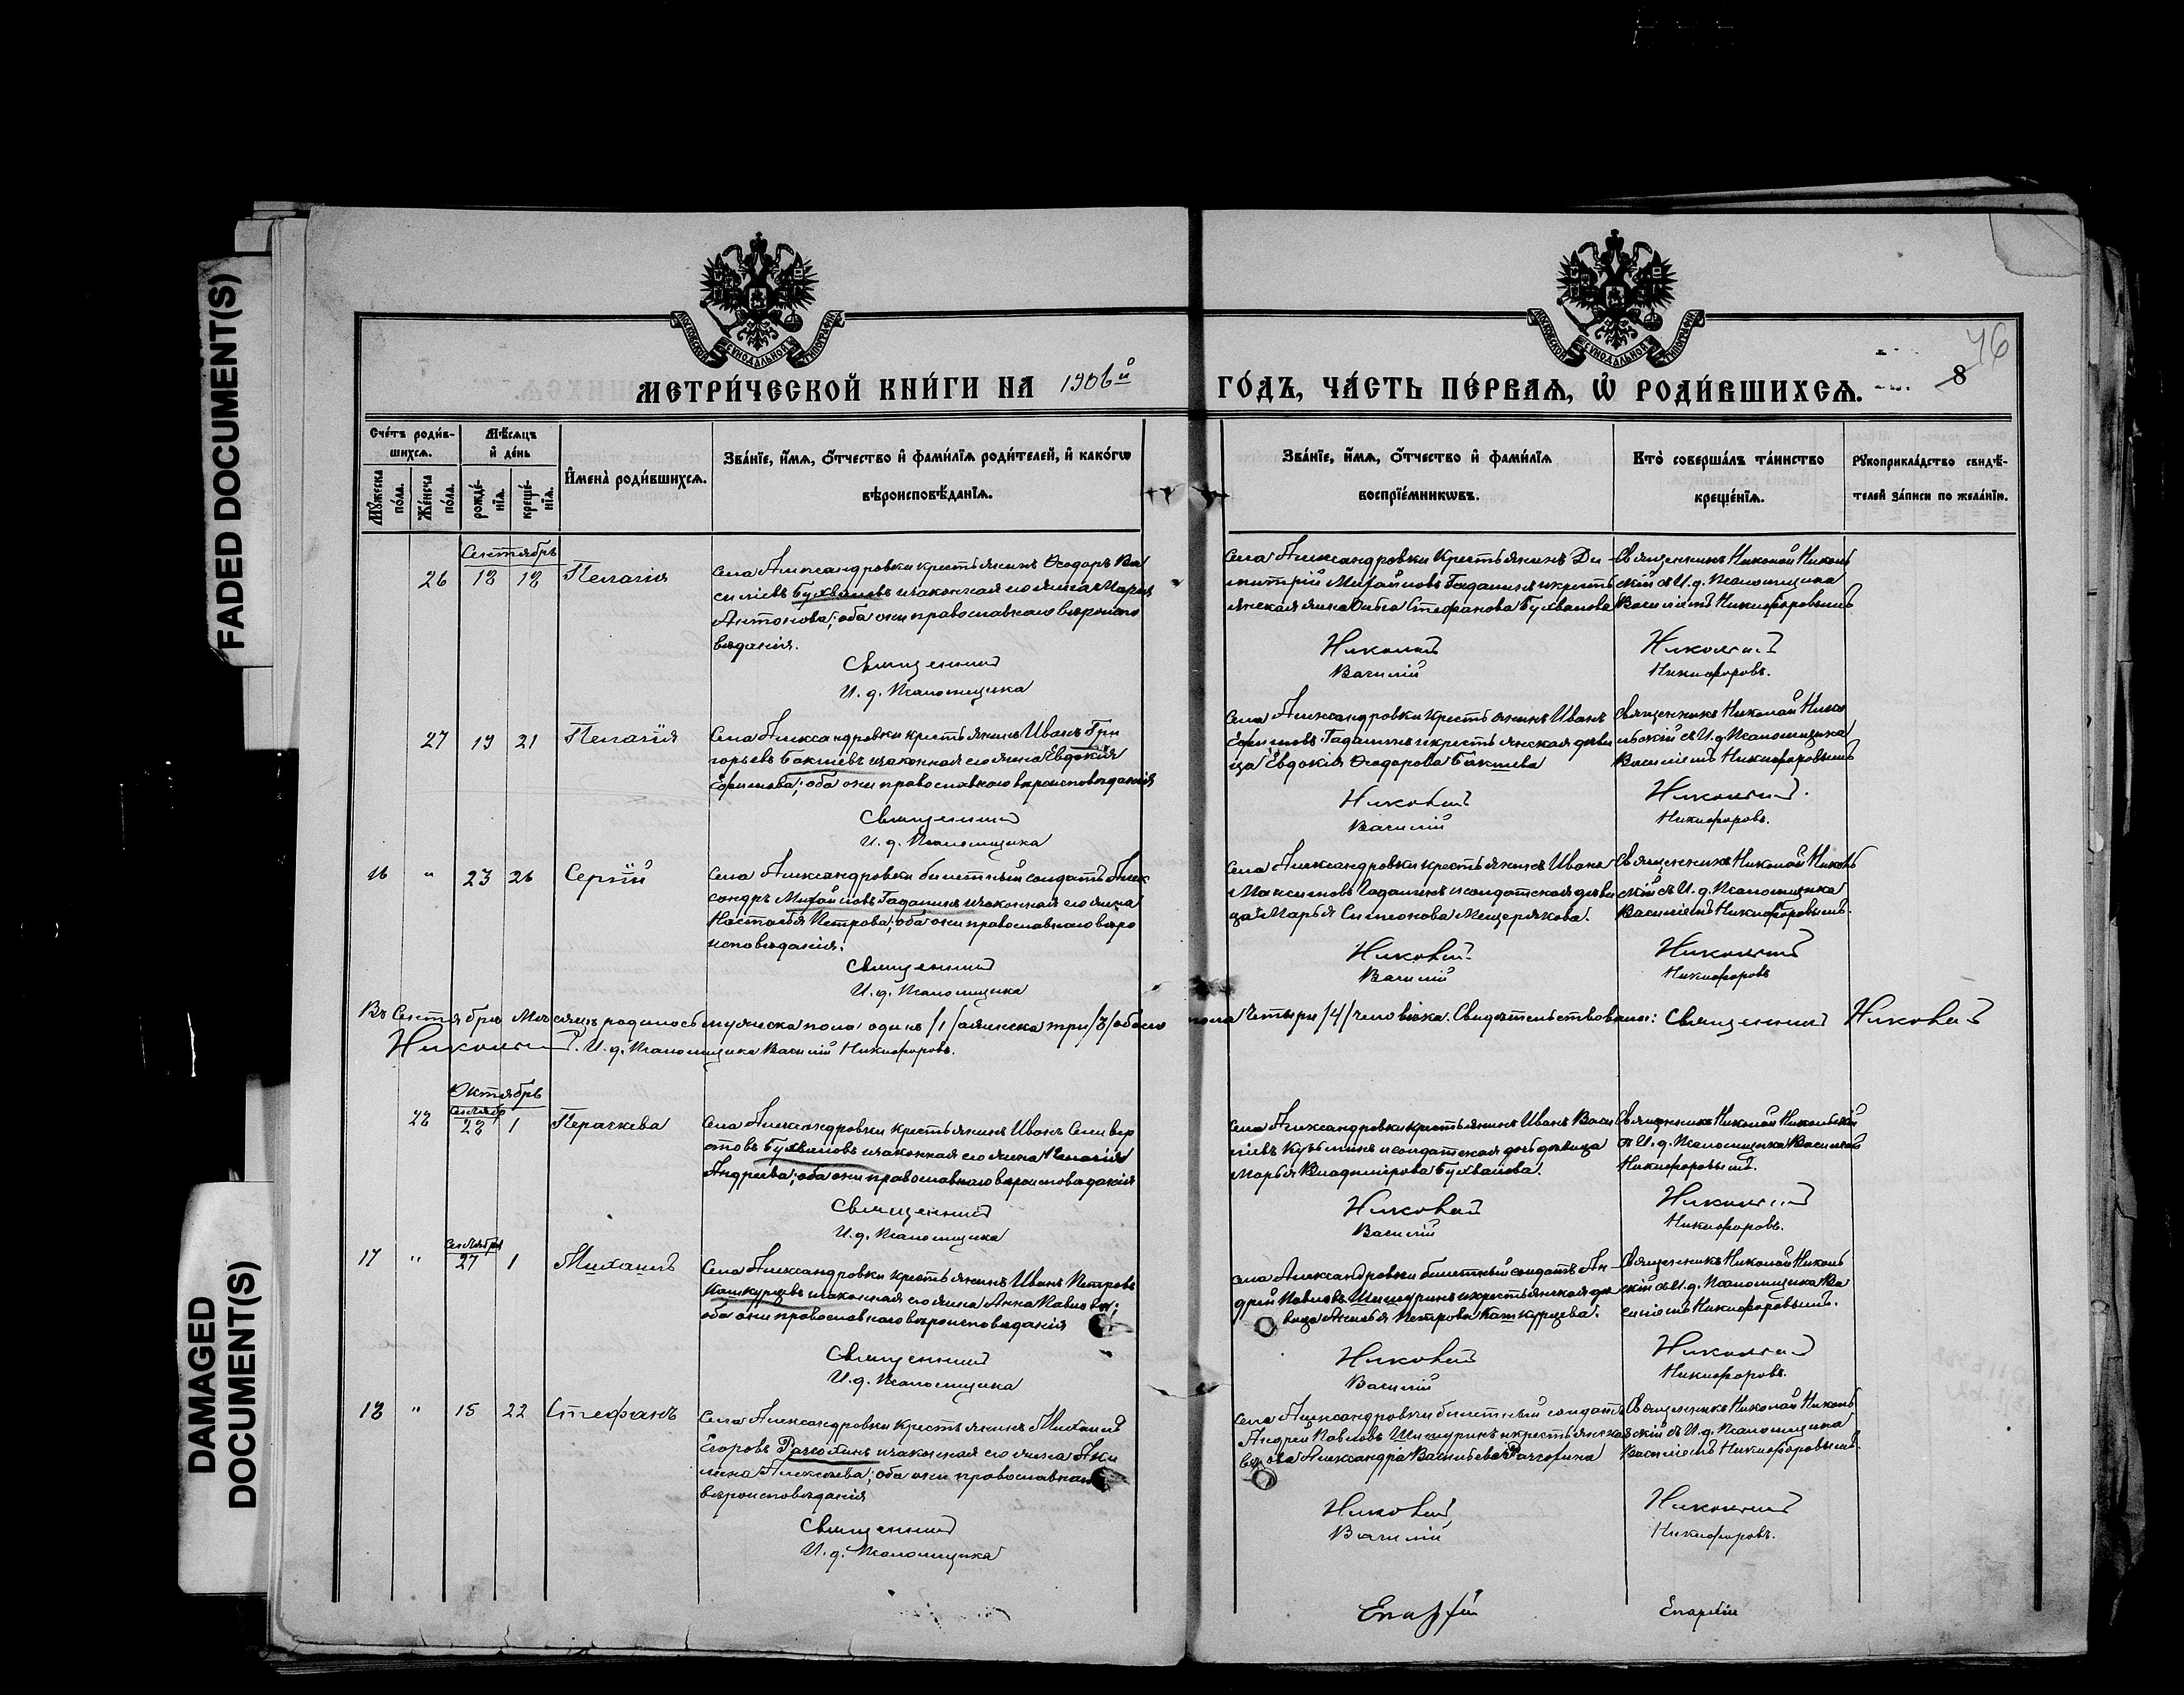 FADED DOCUMENT(S)
DAMAGED
DOCUMENT(S)
МОСКОВСКОЙ СѴНОДАЛЬНОЙ ТИПОГРАФІИ
МОСКОВСКОЙ СѴНОДАЛЬНОЙ ТИПОГРАФІИ
46
8
МЕТРИ́ЧЕСКОЙ КНИ́ГИ НА 1906й ГО́ДЪ, ЧА́СТЬ ПЕ́РВАѦ, Ѡ҆ РОДИ́ВШИХСѦ.
Сче́тъ роди́в-
шихсѧ.
Мꙋ́жеска по́ла.
Же́нска по́ла.
Мѣ́сѧцъ
и҆ де́нь
рожде́-
нїѧ.
креще́-
нїѧ.
И҆мена̀ роди́вшихсѧ.
Зва́нїе, и҆́мѧ, ѻ҆́тчество и҆ фами́лїѧ роди́телей, и҆ како́гѡ
вѣроисповѣ́данїѧ.
Зва́нїе, и҆́мѧ, ѻ҆́тчество и҆ фами́лїѧ
воспрїе́мникѡвъ.
Кто̀ соверша́лъ та́инство
креще́нїѧ.
Рꙋкоприкла́дство свидѣ́-
телей за́писи по жела́нїю.
Сентябрь
26 18 18 Пелагія
Села Александровки крестьянинъ Ѳеодоръ Ва
силіевъ Бухваловъ и законная его жена Марія
Антонова; оба они православнаго вѣроиспо
вѣданія.
Священникъ
И. д. Псаломщика
Села Александровки крестьянинъ Ди-
митрій Михайловъ Гадалинъ и кресть
янская жена Стефанова Бухвалова
Николай
Василій
Священникъ Николай Николь
скій съ И. д. Псаломщика
Василіемъ Никифоровымъ
Никольскій
Никифоровъ.
27 19 21 Пелагія
Села Александровки крестьянинъ Иванъ Гри
горьевъ Бакшевъ и законная его жена Евдокія
Ефимова; оба они православнаго вѣроисповѣданія
Священникъ
И. д. Псаломщика
Села Александровки крестьянинъ Иванъ
Ефимовъ Гадалинъ и крестьянская дѣви
ца Евдокія Ѳеодорова Бакшева
Николай
Василій
Священникъ Николай Нико
льскій съ И. д. Псаломщика
Василіемъ Никифоровымъ
Никольскій.
Никифоровъ.
16 " 23 26 Сергій
Села Александровки билетный солдатъ Алек
сандръ Михайловъ Гадалинъ и законная его жена
Настасія Петрова; оба они православнаго вѣро
исповѣданія.
Священникъ
И. д. Псаломщика
Села Александровки крестьянинъ Иванъ
Максимовъ Гадалинъ и солдатская дѣви
ца Марья Симонова Мещерякова.
Николай
Василій
Священникъ Николай Николь
скій съ И. д. Псаломщика
Василіемъ Никифоровымъ.
Никольскій
Никифоровъ
Въ Сентябрѣ мѣсяцѣ родилось мужеска пола одинъ /1/ а женска три /3/ обоего пола четыри /4/ человѣка. Свидѣтельствовали: Священникъ Николай
Никольскій. И. д. Псаломщика Василій Никифоровъ.
Октябрь
Сентябр
28 28 1 Параскева
Села Александровки крестьянинъ Иванъ Сели вер
стовъ Бухваловъ и законная его жена Пелагія
Андреева; оба они православнаго вѣроисповѣданія
Священникъ
И. д. Псаломщика
Села Александровки крестьянинъ Иванъ Васи
ліевъ Кузьминъ и солдатская дочь дѣвица
Марья Владимірова Бухвалова.
Николай
Василій
Священникъ Николай Никольскій
съ И. д. Псаломщика Василіемъ
Никифоровымъ.
Никольскій
Никифоровъ.
Сентября
17 " 27 1 Михаилъ
Села Александровки крестьянинъ Иванъ Петровъ
Кашкурцевъ и законная его жена Анна Павлова;
оба они православнаго вѣроисповѣданія
Священникъ
И. д. Псаломщика
Села Александровки билетный солдатъ Ан-
дрей Павловъ Шишуринъ и крестьянская дѣ
вица Петрова Кашкурцева.
Николай
Василій
Священникъ Николай Николь
скій съ И. д. Псаломщика Ва
силіемъ Никифоровымъ.
Никольскій
Никифоровъ.
18 " 15 22 Стефанъ
Села Александровки крестьянинъ Михаилъ
Егоровъ Рачохинъ и законная его жена Аки
лина Алексѣева; оба они православнаго
вѣроисповѣданія
Священникъ
И. д. Псаломщика
Села Александровки билетный солдатъ
Андрей Павловъ Шишуринъ и крестьянская
вдова Александра Васильева Рачохина
Николай
Василій
Священникъ Николай Николь
скій съ И. д. Псаломщика
Василіемъ Никифоровымъ.
Никольскій
Никифоровъ.